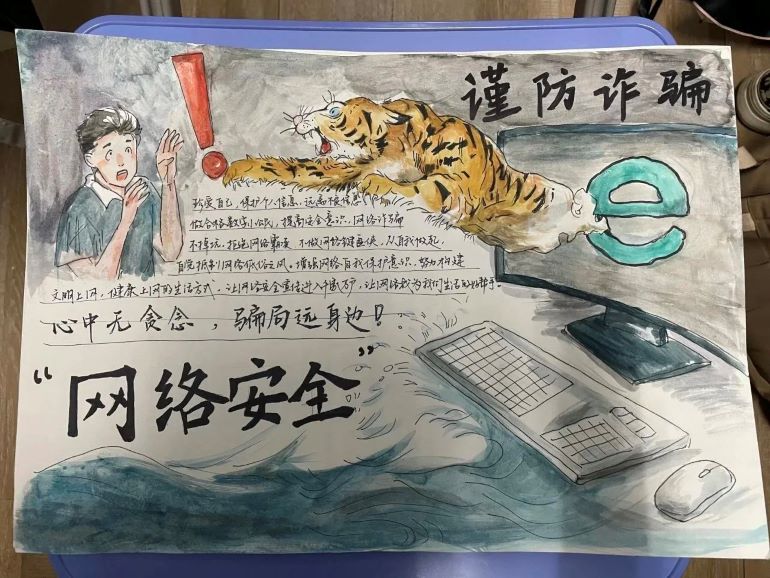 谨防诈骗
e
珍爱自己,保护个人信息,远离不良信息
做合格数字公民,提高安全意识,网络诈骗
不掉坑,拒绝网络霸凌 不做网络键盘侠,从自我做起,
自觉抵制网络低俗之风。增强网络自我保护意识,努力构建
文明上网,健康上网的生活方式。让网络安全意识进入,让网络成为我们生活的好帮手。
心中无贪念,骗局远身边!
“网络安全”